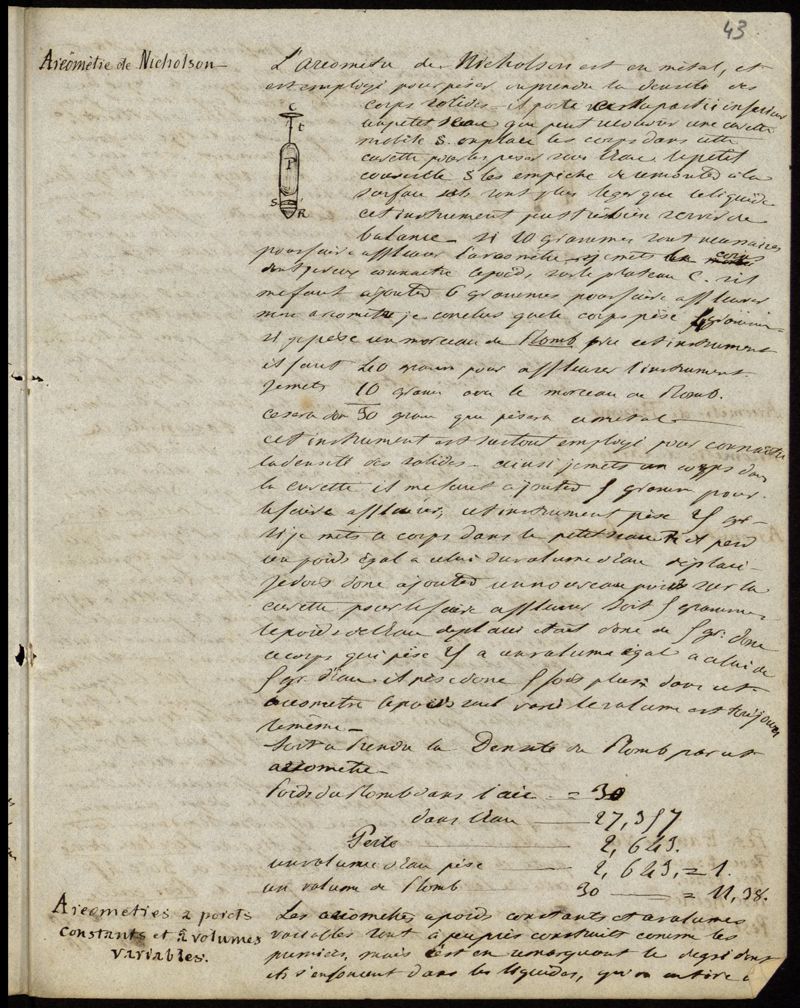 43
Areômètre de Nicholson —
L'areometre de Nicholson est en métal, et
est employé pour peser ou prendre la densité des
corps solides — il porte vers la partie inferieur
un petit seau que peut recouvrir une cuvette
mobile S. on place les corps dans cette
cuvette pour les peser sous l'eau le petit
couvercle S les empêche de remonter à la
surface s'ils sont plus leger que le liquide
cet instrument peut très bien servir de
balance — si 10 grammes sont necessaires
pour faire affleurer l'areomètre — je mets le corps
dont je veux connaitre le poids sur le plateau C. s'il
me faut ajouter 6 grammes pour faire affleurer
mon areomètre je conclus que le corps pèse 4 gramm
si je pèse un morceau de Plomb avec cet instrument
il faut 40 gram pour affleurer l'instrument
je mets 10 gram avec le morceau de Plomb.
ce sera donc 30 gram que pèsera ce metal —
cet instrument est surtout employé pour connaitre
la densité des solides — ainsi je mets un corps dans
la cuvette il me faut ajouter 5 gramm pour
le faire affleurer, cet instrument pèse 25 gr —
si je mets ce corps dans le petit seau R il perd
un poids égal a celui du volume d'eau déplacé —
je dois donc ajouter un nouveau poids sur la
cuvette pour le faire affleurer soit 5 gramme
le poids de l'eau deplacé etait donc de 5 gr. donc
ce corps qui pèse 25 a un volume égal a celui de
5 gr d'eau il pèse donc 5 fois plus, dans cet
areometre le poids seul varie le volume est toujours
le même —
Soit a Prendre la Densité du Plomb par cet
areometre —
Poids du Plomb dans l'air — = 30
dans l'eau — 27,357
Perte — 2,643.
un volume d'eau pèse — 2,643, = 1.
un volume de Plomb — 30 — = 11,38.
Areometres a poids
constants et à volumes
variables.
Les areometres a poids constants et a volumes
variables sont à peu près construits comme les
premiers, mais c'est en remarquant le degré dont
ils s'enfoncent dans les liquides, qu'on en tire
C
t
P
S
R